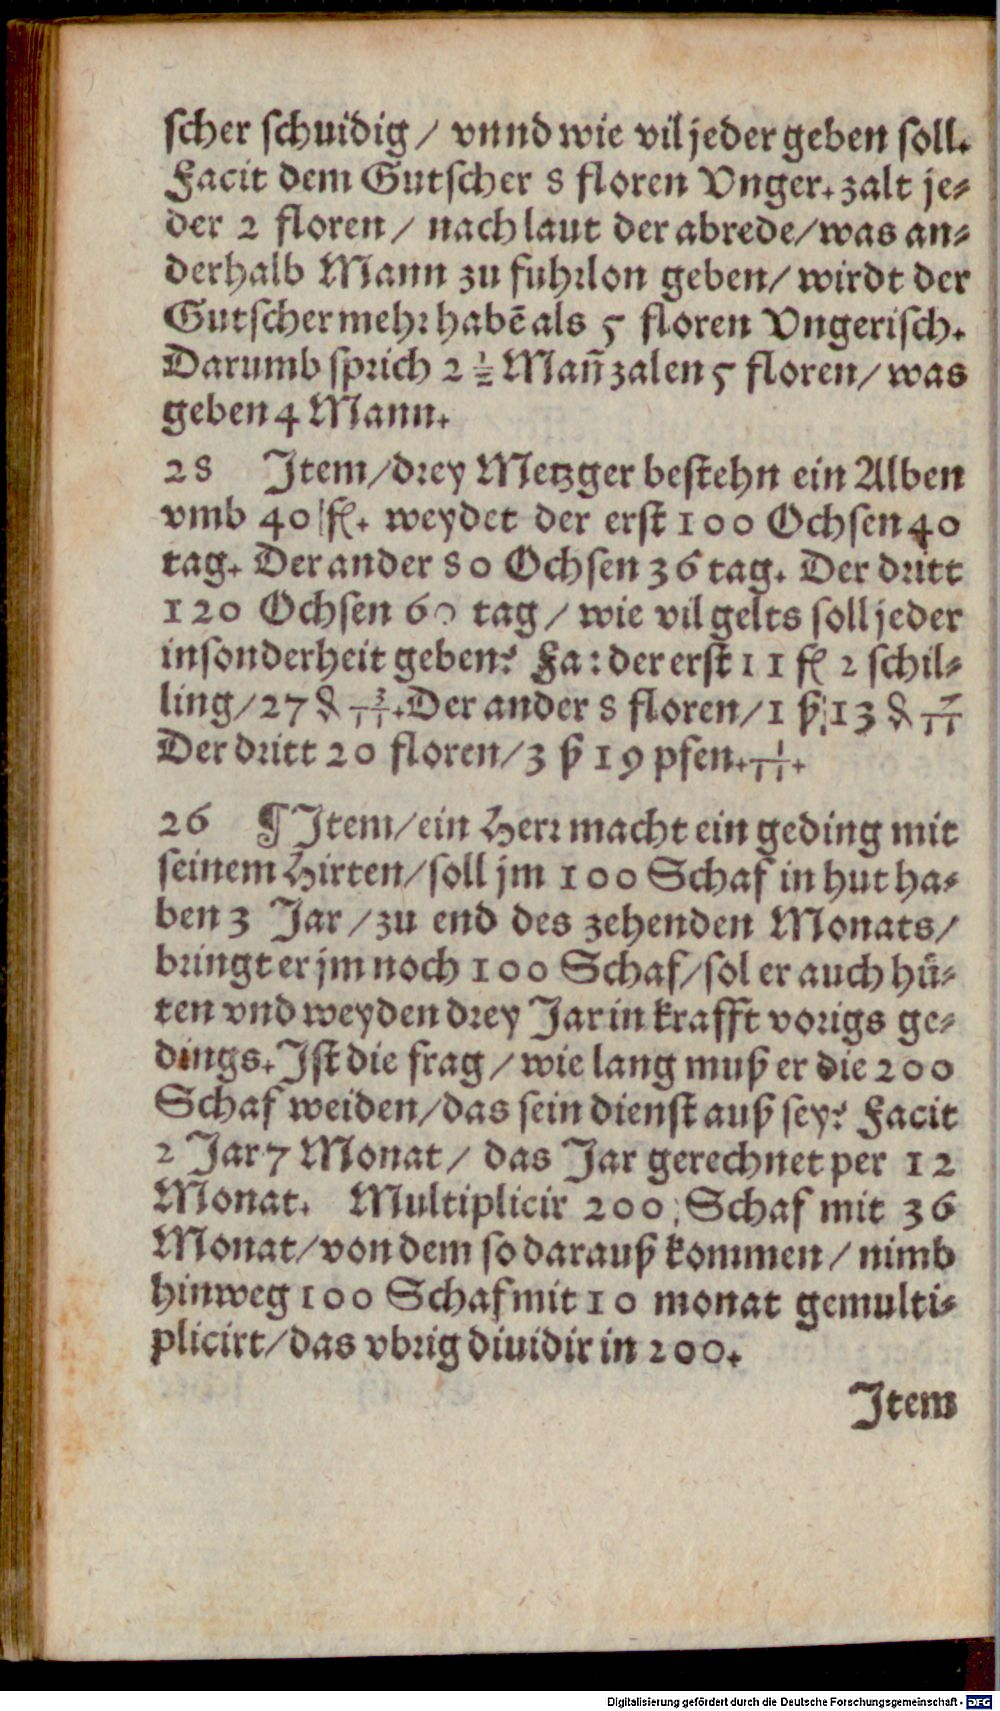 scher schuidig / vnnd wie vil jeder geben soll.
Facit dem Gutscher 8 floren Vnger. zalt je-
der 2 floren / nach laut der abrede / was an-
derhalb Mann zu fuhrlon geben / wirdt der
Gutscher mehr habē als 5 floren Vngerisch.
Darumb sprich 2 ½ Man̄ zalen 5 floren / was
geben 4 Mann.
28 Item / drey Metzger bestehn ein Alben
vmb 40 fl. weydet der erst 100 Ochsen 40
tag. Der ander 80 Ochsen 36 tag. Der dritt
120 Ochsen 60 tag / wie vil gelts soll jeder
insonderheit geben? Fa: der erst 11 fl 2 schil-
ling / 27 ₰ 3/11. Der ander 8 floren / 1 ß 13 ₰ 7/11
Der dritt 20 floren / 3 ß 19 pfen. 1/11.
26 ¶ Item / ein Herr macht ein geding mit
seinem Hirten / soll jm 100 Schaf in hut ha-
ben 3 Jar / zu end des zehenden Monats /
bringt er jm noch 100 Schaf / sol er auch huͤ-
ten vnd weyden drey Jar in krafft vorigs ge-
dings. Ist die frag / wie lang muß er die 200
Schaf weiden / das sein dienst auß sey? Facit
2 Jar 7 Monat / das Jar gerechnet per 12
Monat. Multiplicir 200 Schaf mit 36
Monat / von dem so darauß kommen / nimb
hinweg 100 Schaf mit 10 monat gemulti-
plicirt / das vbrig diuidir in 200.
Item
Digitalisierung gefördert durch die Deutsche Forschungsgemeinschaft - DFG